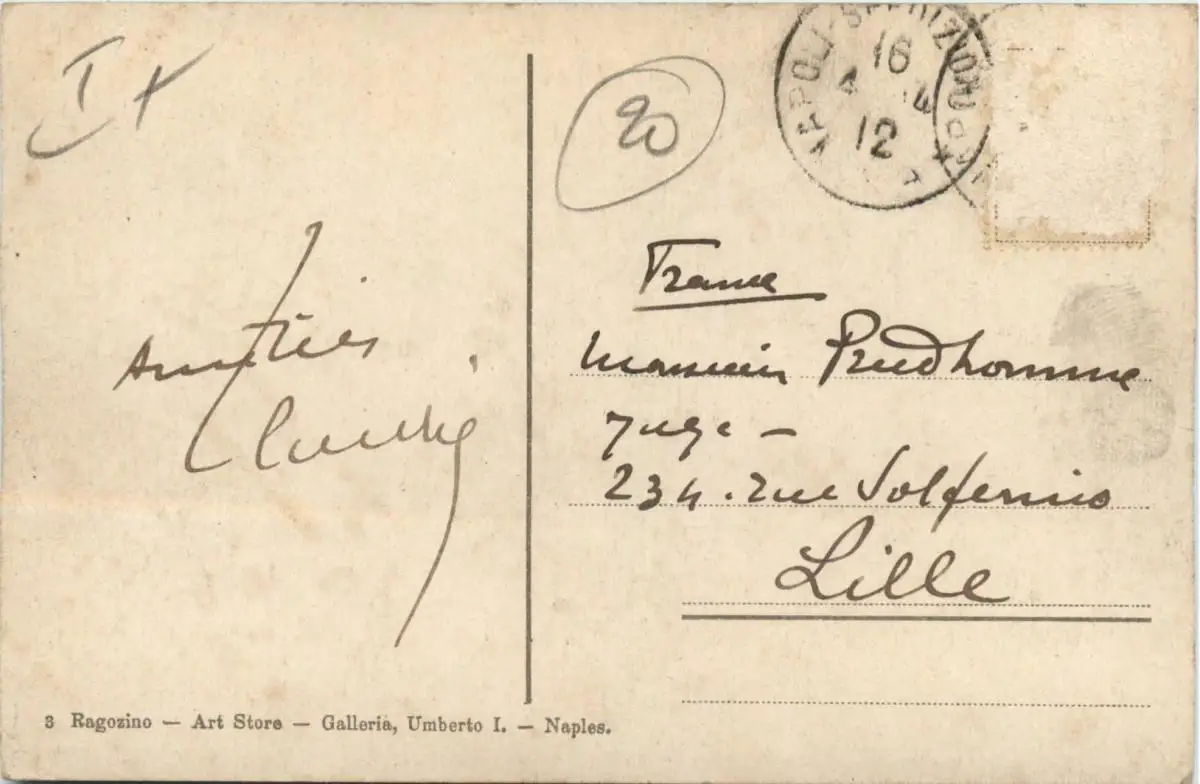 I +
20
NAPOLI
16
12
France
Amitiés
Monsieur Prudhomme
Juge -
234. rue Solferino
Lille
3 Ragozino — Art Store — Galleria, Umberto I. — Naples.